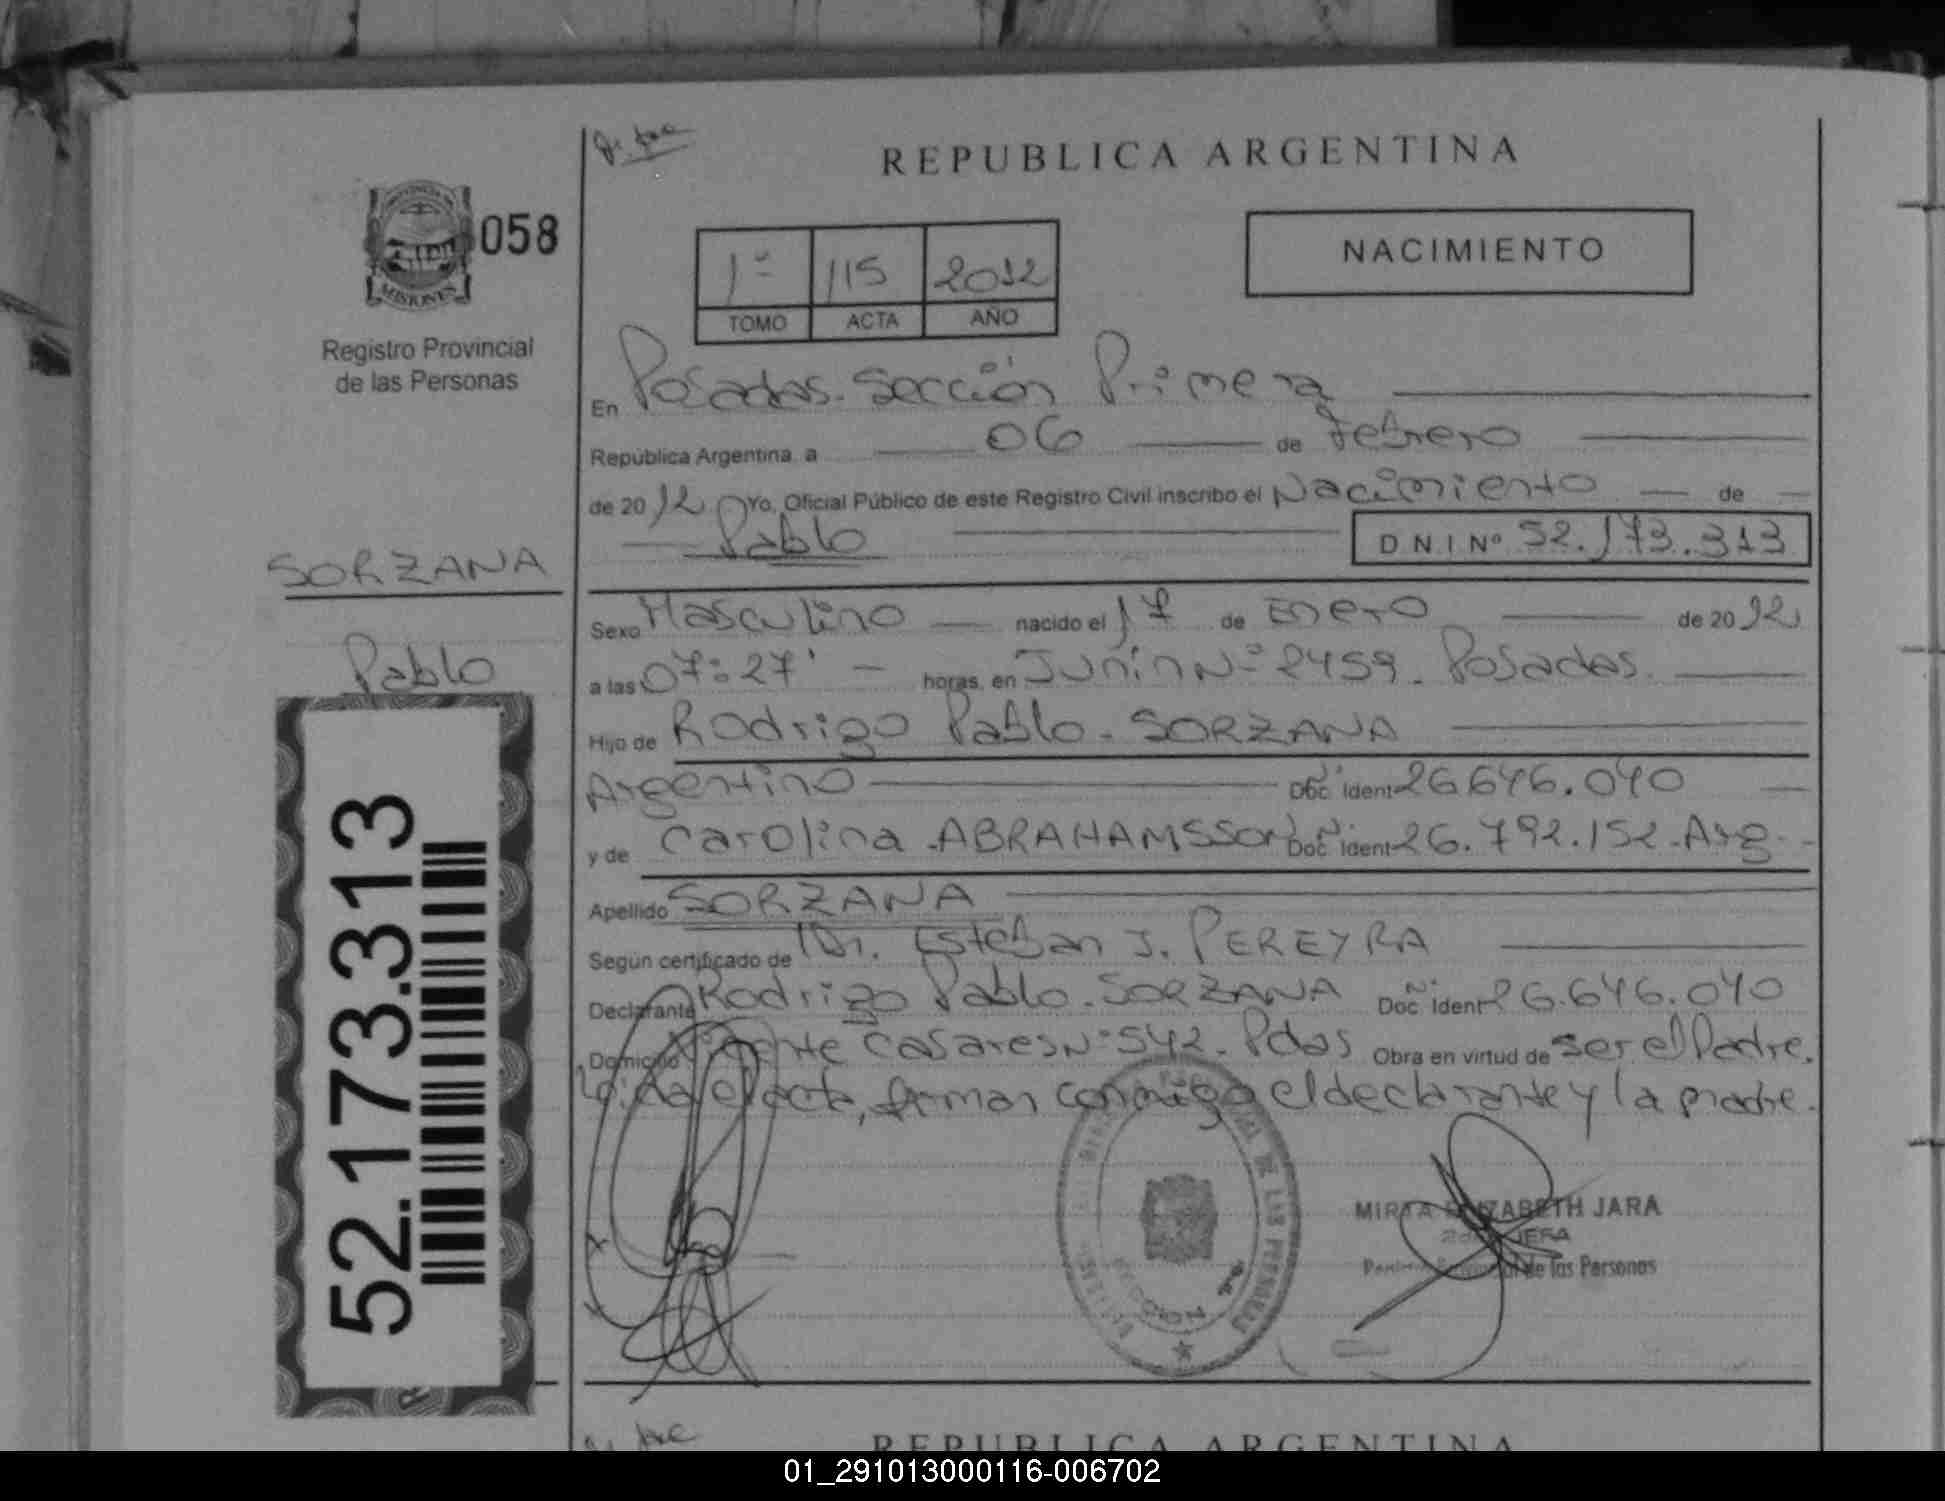 REPUBLICA ARGENTINA
PROVINCIA DE
MISIONES
058
Registro Provincial
de las Personas
1º 115 2012
TOMO ACTA AÑO
NACIMIENTO
En Posadas. Sección Primera
República Argentina, a 06 de Febrero
de 2012 Yo, Oficial Público de este Registro Civil inscribo el Nacimiento de
Pablo D N I Nº 52.173.313
SORZANA
Pablo
52.173.313
Sexo Masculino nacido el 17 de Enero de 2012
a las 07:27' horas, en Junín Nº 2459. Posadas.
Hijo de Rodrigo Pablo. SORZANA
Argentino Doc. Ident 26.646.040
y de Carolina. ABRAHAMSSON Doc. Ident 26.792.152. Arg.
Apellido SORZANA
Según certificado de Dr. Esteban J. PEREYRA
Declarante Rodrigo Pablo. SORZANA Doc. Ident 26.646.040
Domicilio Vicente Casares Nº 542. Pdas Obra en virtud de ser el Padre.
Leída el acta, firman conmigo el declarante y la madre.
MIRTA ELIZABETH JARA
JEFA
de las Personas
REPUBLICA ARGENTINA
01_291013000116-006702